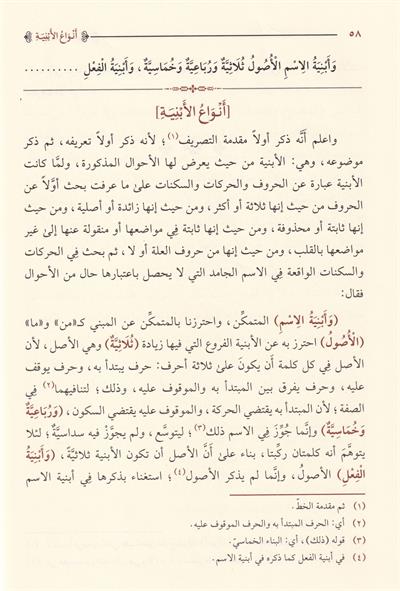 ٥٨ أَنْوَاعُ الأَبْنِيَـةِ
وَأَبْنِيَةُ الِاسْمِ الْأُصُولُ ثُلَاثِيَّةٌ وَرُبَاعِيَّةٌ وَخُمَاسِيَّةٌ، وَأَبْنِيَةُ الْفِعْلِ ..........
[أَنْوَاعُ الأَبْنِيَـةِ]
واعلم أنَّه ذكر أولاً مقدمة التصريف(١)؛ لأنه ذكر أولاً تعريفه، ثم ذكر
موضوعه، وهي: الأبنية من حيث يعرض لها الأحوال المذكورة، ولمَّا كانت
الأبنية عبارة عن الحروف والحركات والسكنات على ما عرفت بحث أوَّلاً عن
الحروف من حيث إنها ثلاثة أو أكثر، ومن حيث إنها زائدة أو أصلية، ومن حيث
إنها ثابتة أو محذوفة، ومن حيث إنها ثابتة في مواضعها أو منقولة عنها إلى غير
مواضعها بالقلب، ومن حيث إنها من حروف العلة أو لا، ثم بحث في الحركات
والسكنات الواقعة في الاسم الجامد التي لا يحصل باعتبارها حال من الأحوال
فقال:
(وَأَبْنِيَةُ الِاسْمِ) المتمكن، واحترزنا بالمتمكِّن عن المبني كـ«من» و«ما»
(الْأُصُولُ) احترز به عن الأبنية الفروع التي فيها زيادة (ثُلَاثِيَّةٌ) وهي الأصل، لأن
الأصل في كل كلمة أن يكونَ على ثلاثة أحرف: حرف يبتدأ به، وحرف يوقف
عليه، وحرف يفرق بين المبتدأ به والموقوف عليه، وذلك؛ لتنافيهما(٢) في
الصفة؛ لأن المبتدأ به يقتضي الحركة، والموقوف عليه يقتضي السكون، (وَرُبَاعِيَّةٌ
وَخُمَاسِيَّةٌ) وإنَّما جُوِّزَ في الاسم ذلك(٣)؛ ليتوسَّع، ولم يجوَّز فيه سداسيَّة؛ لئلا
يتوهَّمَ أنه كلمتان ركِّبتا، بناء على أنَّ الأصل أن تكون الأبنية ثلاثيَّةً، (وَأَبْنِيَةُ
الْفِعْلِ) الأصولُ، وإنَّما لم يذكر الأصول(٤)؛ استغناء بذكرها في أبنية الاسم
(١) ثم مقدمة الخطّ.
(٢) أي: الحرف المبتدأ به والحرف الموقوف عليه.
(٣) قوله (ذلك)، أي: البناء الخماسيّ.
(٤) في أبنية الفعل كما ذكره في أبنية الاسم.